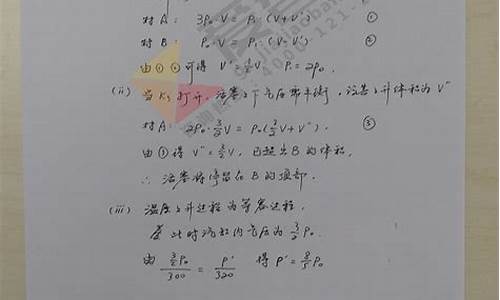 对A: 3P₀·V = P₁(V+V') ①
对B: P₀·V = P₁(V-V') ②
由①②可得 V'=½V, P₁=2P₀.
(ii) 当K₃打开, 活塞上下气压带平衡, 设其上升体积为V''
对A: 2P₀·3/2V = P₀(3/2V+V''). ③
由③得 V''=3/2V, 已超出B的体积,
∴ 活塞将停留在B的顶部.
(iii) 温度上升过程为等容过程.
此时汽缸内气压为 3/2P₀.
由 3/2P₀/300 = P'/320 得 P'=8/5P₀